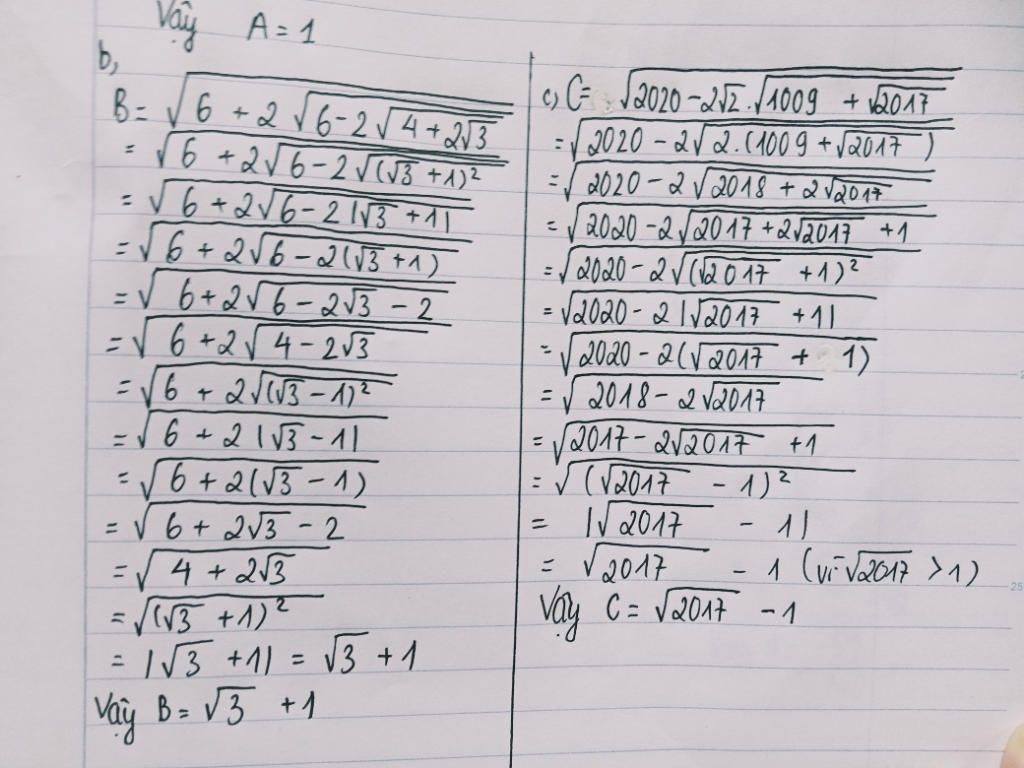 Vậy A = 1
b,
B = √(6 + 2√(6 - 2√(4 + 2√3)))
= √(6 + 2√(6 - 2√((√3 + 1)²)))
= √(6 + 2√(6 - 2|√3 + 1|))
= √(6 + 2√(6 - 2(√3 + 1)))
= √(6 + 2√(6 - 2√3 - 2))
= √(6 + 2√(4 - 2√3))
= √(6 + 2√((√3 - 1)²))
= √(6 + 2|√3 - 1|)
= √(6 + 2(√3 - 1))
= √(6 + 2√3 - 2)
= √(4 + 2√3)
= √((√3 + 1)²)
= |√3 + 1| = √3 + 1
Vậy B = √3 + 1
c, C = √(2020 - 2√2 . √(1009 + √2017))
= √(2020 - 2√(2.(1009 + √2017)))
= √(2020 - 2√(2018 + 2√2017))
= √(2020 - 2√(2017 + 2√2017 + 1))
= √(2020 - 2√((√2017 + 1)²))
= √(2020 - 2|√2017 + 1|)
= √(2020 - 2(√2017 + 1))
= √(2018 - 2√2017)
= √(2017 - 2√2017 + 1)
= √((√2017 - 1)²)
= |√2017 - 1|
= √2017 - 1 (vì √2017 > 1)
Vậy C = √2017 - 1
25